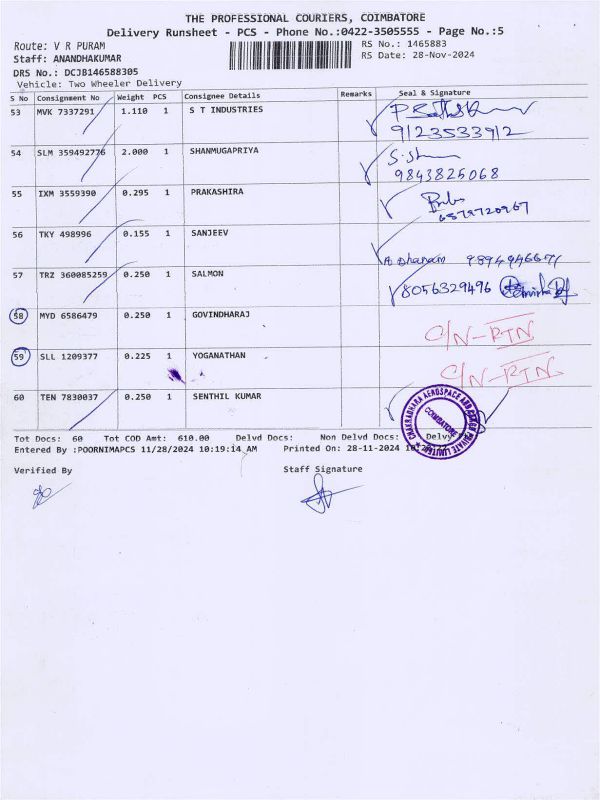 THE PROFESSIONAL COURIERS, COIMBATORE
Delivery Runsheet - PCS - Phone No.:0422-3505555 - Page No.:5
Route: V R PURAM
RS No.: 1465883
Staff: ANANDHAKUMAR
RS Date: 28-Nov-2024
DRS No.: DCJB146588305
Vehicle: Two Wheeler Delivery
S No Consignment No Weight PCS Consignee Details Remarks Seal & Signature
53 MVK 7337291 1.110 1 S T INDUSTRIES
9123533912
54 SLM 359492776 2.000 1 SHANMUGAPRIYA
9843825068
55 IXM 3559390 0.295 1 PRAKASHIRA
56 TKY 498996 0.155 1 SANJEEV
A Dhanam
57 TRZ 360085259 0.250 1 SALMON
8056329496
58 MYD 6586479 0.250 1 GOVINDHARAJ
C/N-RTN
59 SLL 1209377 0.225 1 YOGANATHAN
C/N-RTN
60 TEN 7830037 0.250 1 SENTHIL KUMAR
CHAKRADHARA AEROSPACE AND CARGO PRIVATE LIMITED
COIMBATORE
Tot Docs: 60 Tot COD Amt: 610.00 Delvd Docs: Non Delvd Docs: Delvy
Entered By :POORNIMAPCS 11/28/2024 10:19:14 AM Printed On: 28-11-2024
Verified By Staff Signature